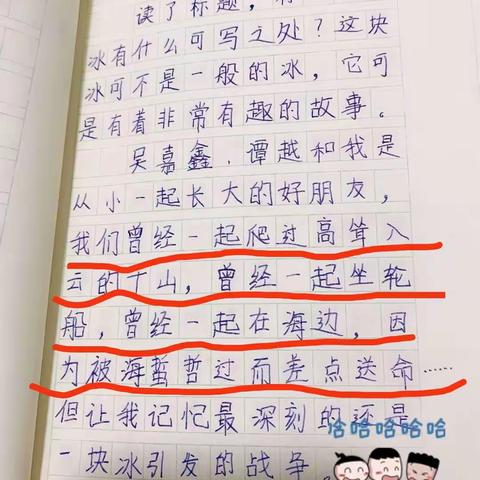 读了标题，
冰有什么可写之处？这块
冰可不是一般的冰，它可
是有着非常有趣的故事。
吴嘉鑫、谭越和我是
从小一起长大的好朋友，
我们曾经一起爬过高耸入
云的丁山，曾经一起坐轮
船，曾经一起在海边，因
为被海蜇哲过而差点送命……
但让我记忆最深刻的还是
一块冰引发的战争
哈哈哈哈哈